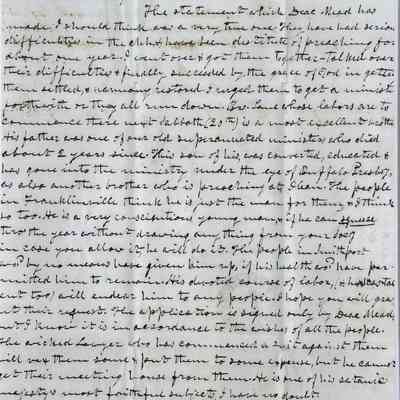 The statement which Deac Mead has
made, I should think was a very true one. They have had serious
difficulties in the chh & have been destitute of preaching for
about one year. I went over & got them together - talked over
their difficulties & finally succeeded by the grace of God in getting
them settled, & harmony restored. I urged them to get a minister
forthwith or they all run down. Bro. Lane whose labors are to
commence there next Sabbath, (20th) is a most excellent brother
His father was one of our old superannuated ministers who died
about 2 years since. This son of his, was converted, educated &
has gone into the ministry under the eye of Buffalo Presby,
as also another brother who is preaching at Olean. The people
in Franklinville think he is just the man for them & I think
so too. He is a very conscientious young man, & if he can squeeze
thro' the year without drawing any thing from your Socy
in case you allow it, he will do it. The people in Smithport
wod by no means have given him up, if his health wod have per-
mitted him to remain. His devoted course of labor, &
will endear him to any people. I hope you will gra
nt their request. The application is signed only by Deac Mead,
but I know it is in accordance to the wishes of all the people.
The wicked Lawyer who has commenced a suit against them
will vex them some & put them to some expense, but he cannot
get their meeting house from them. He is one of his satanic
majesty's most faithful subjects, I have no doubt.